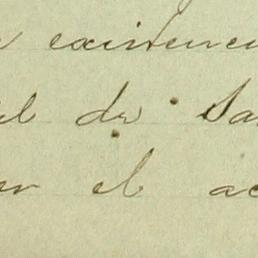 existenci
el dr Sa
er el ac